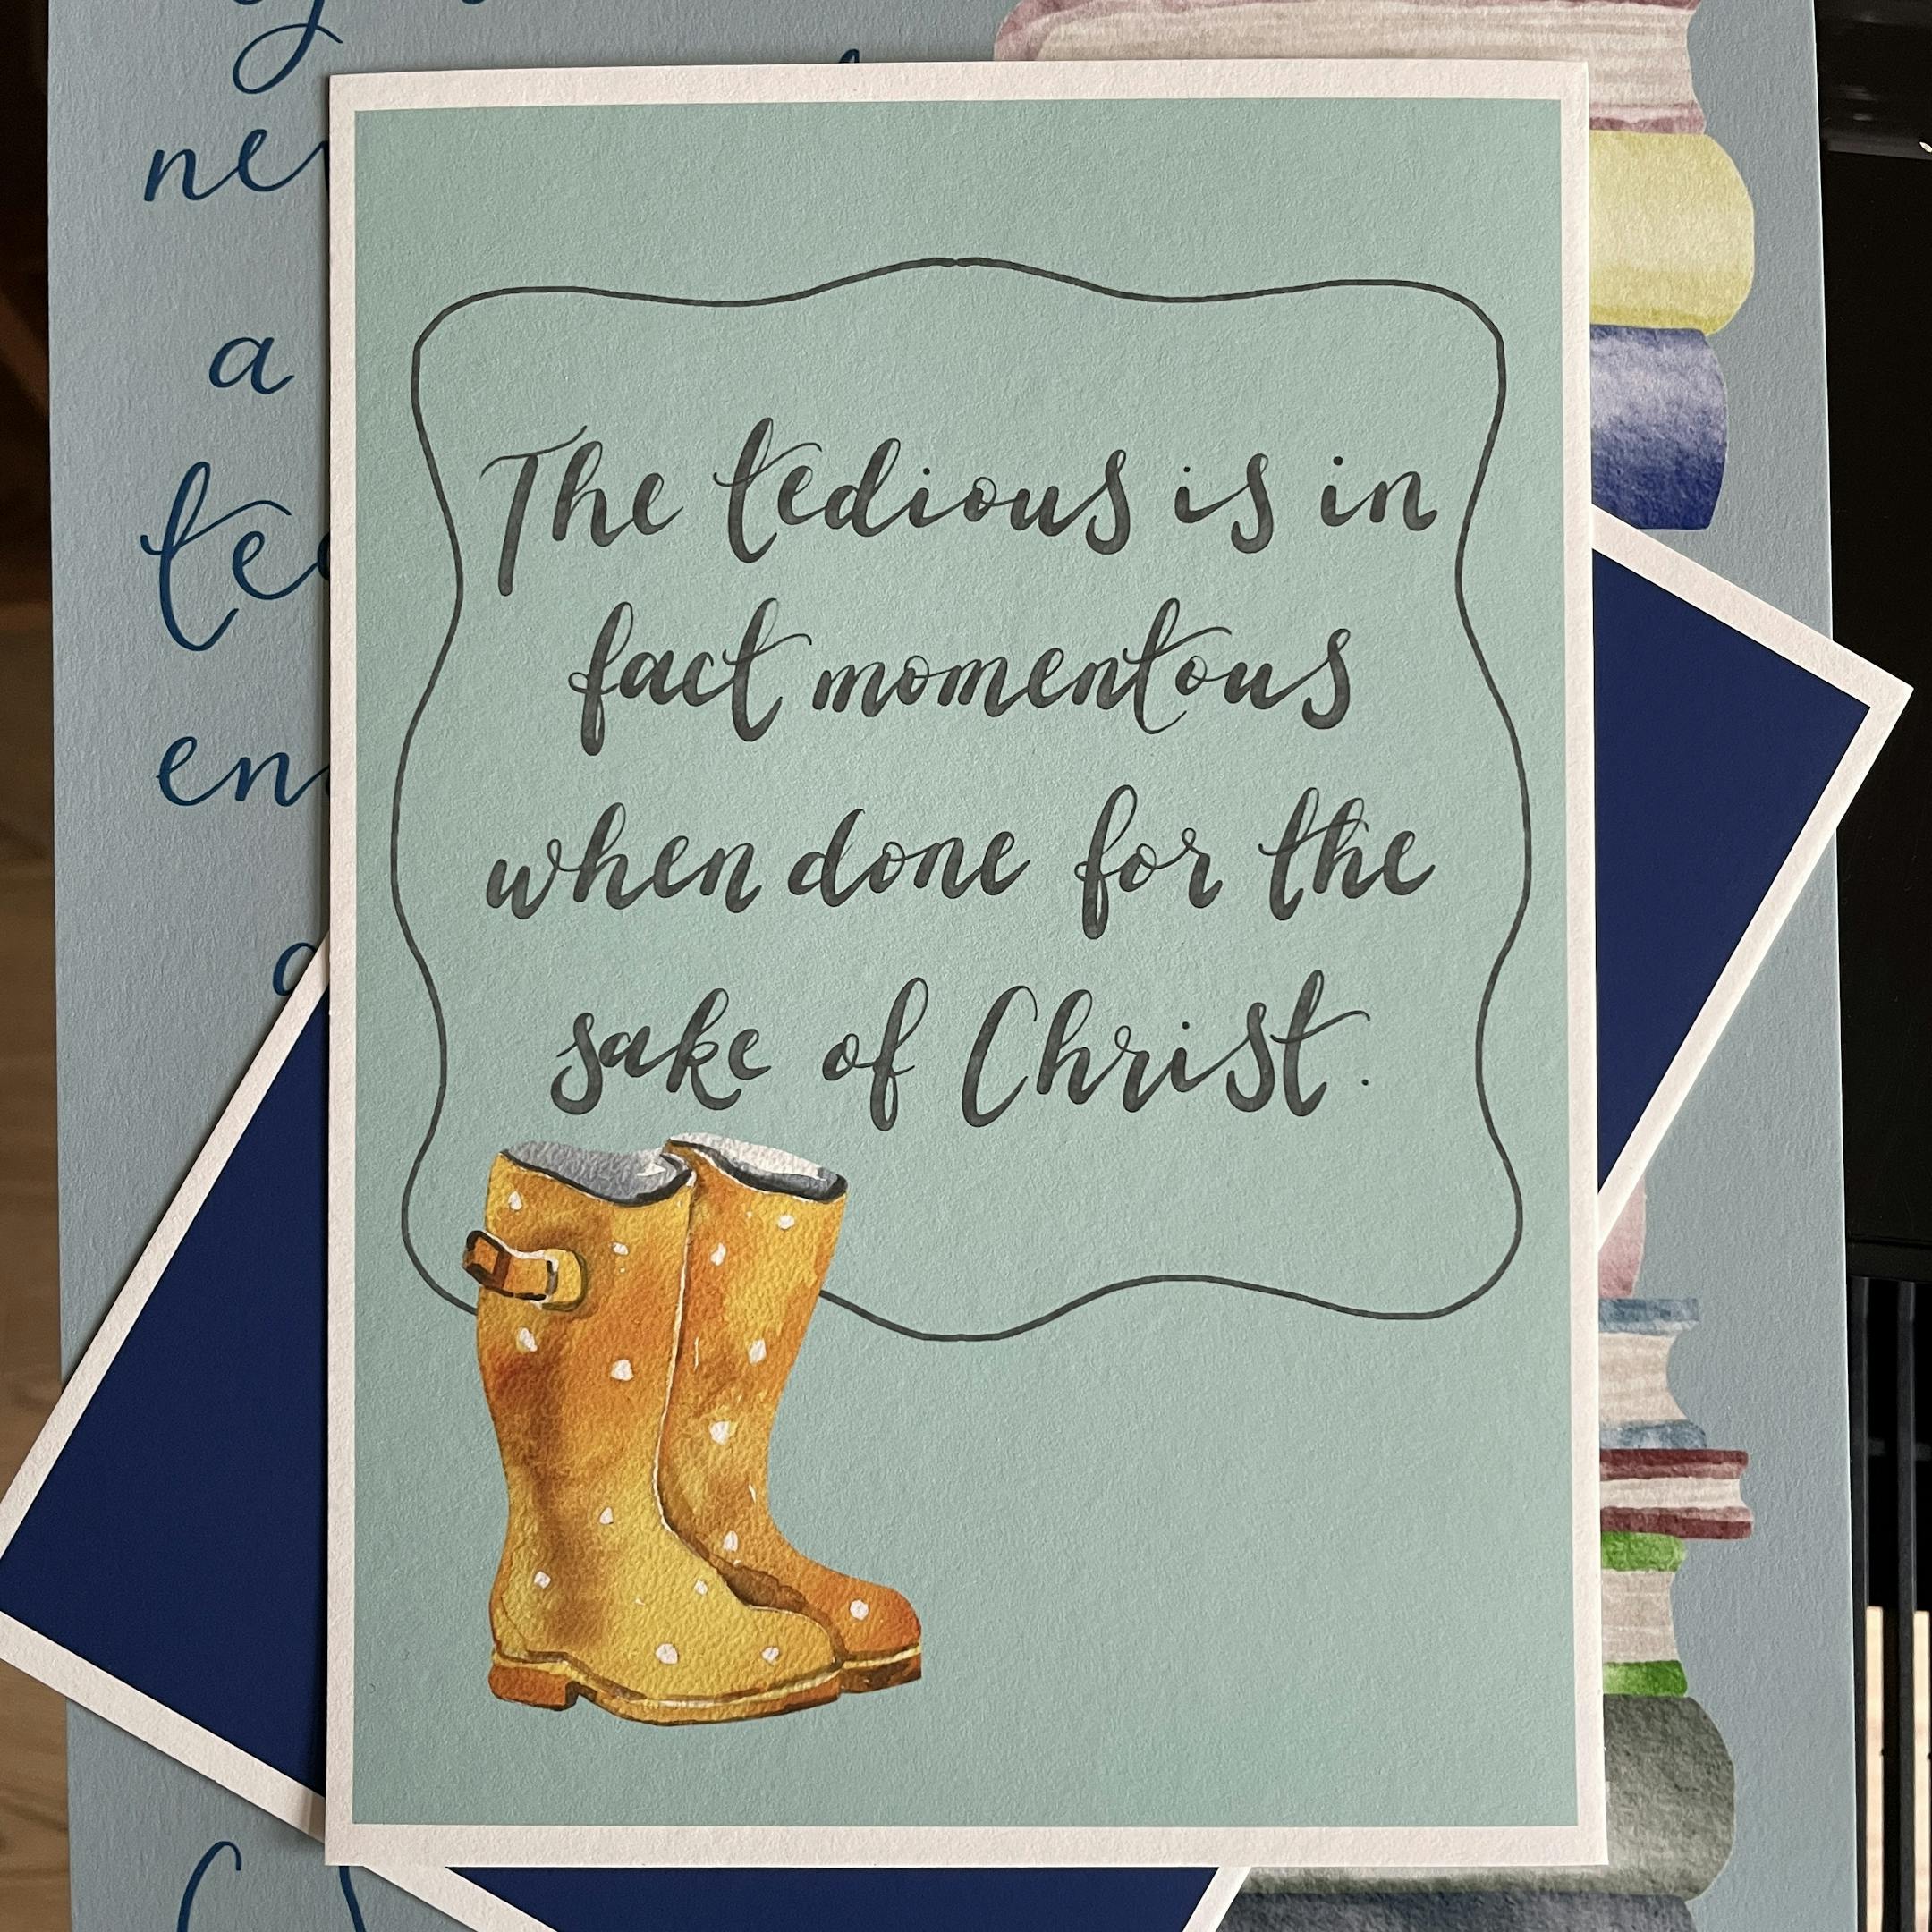 The tedious is in
fact momentous
when done for the
sake of Christ.
a